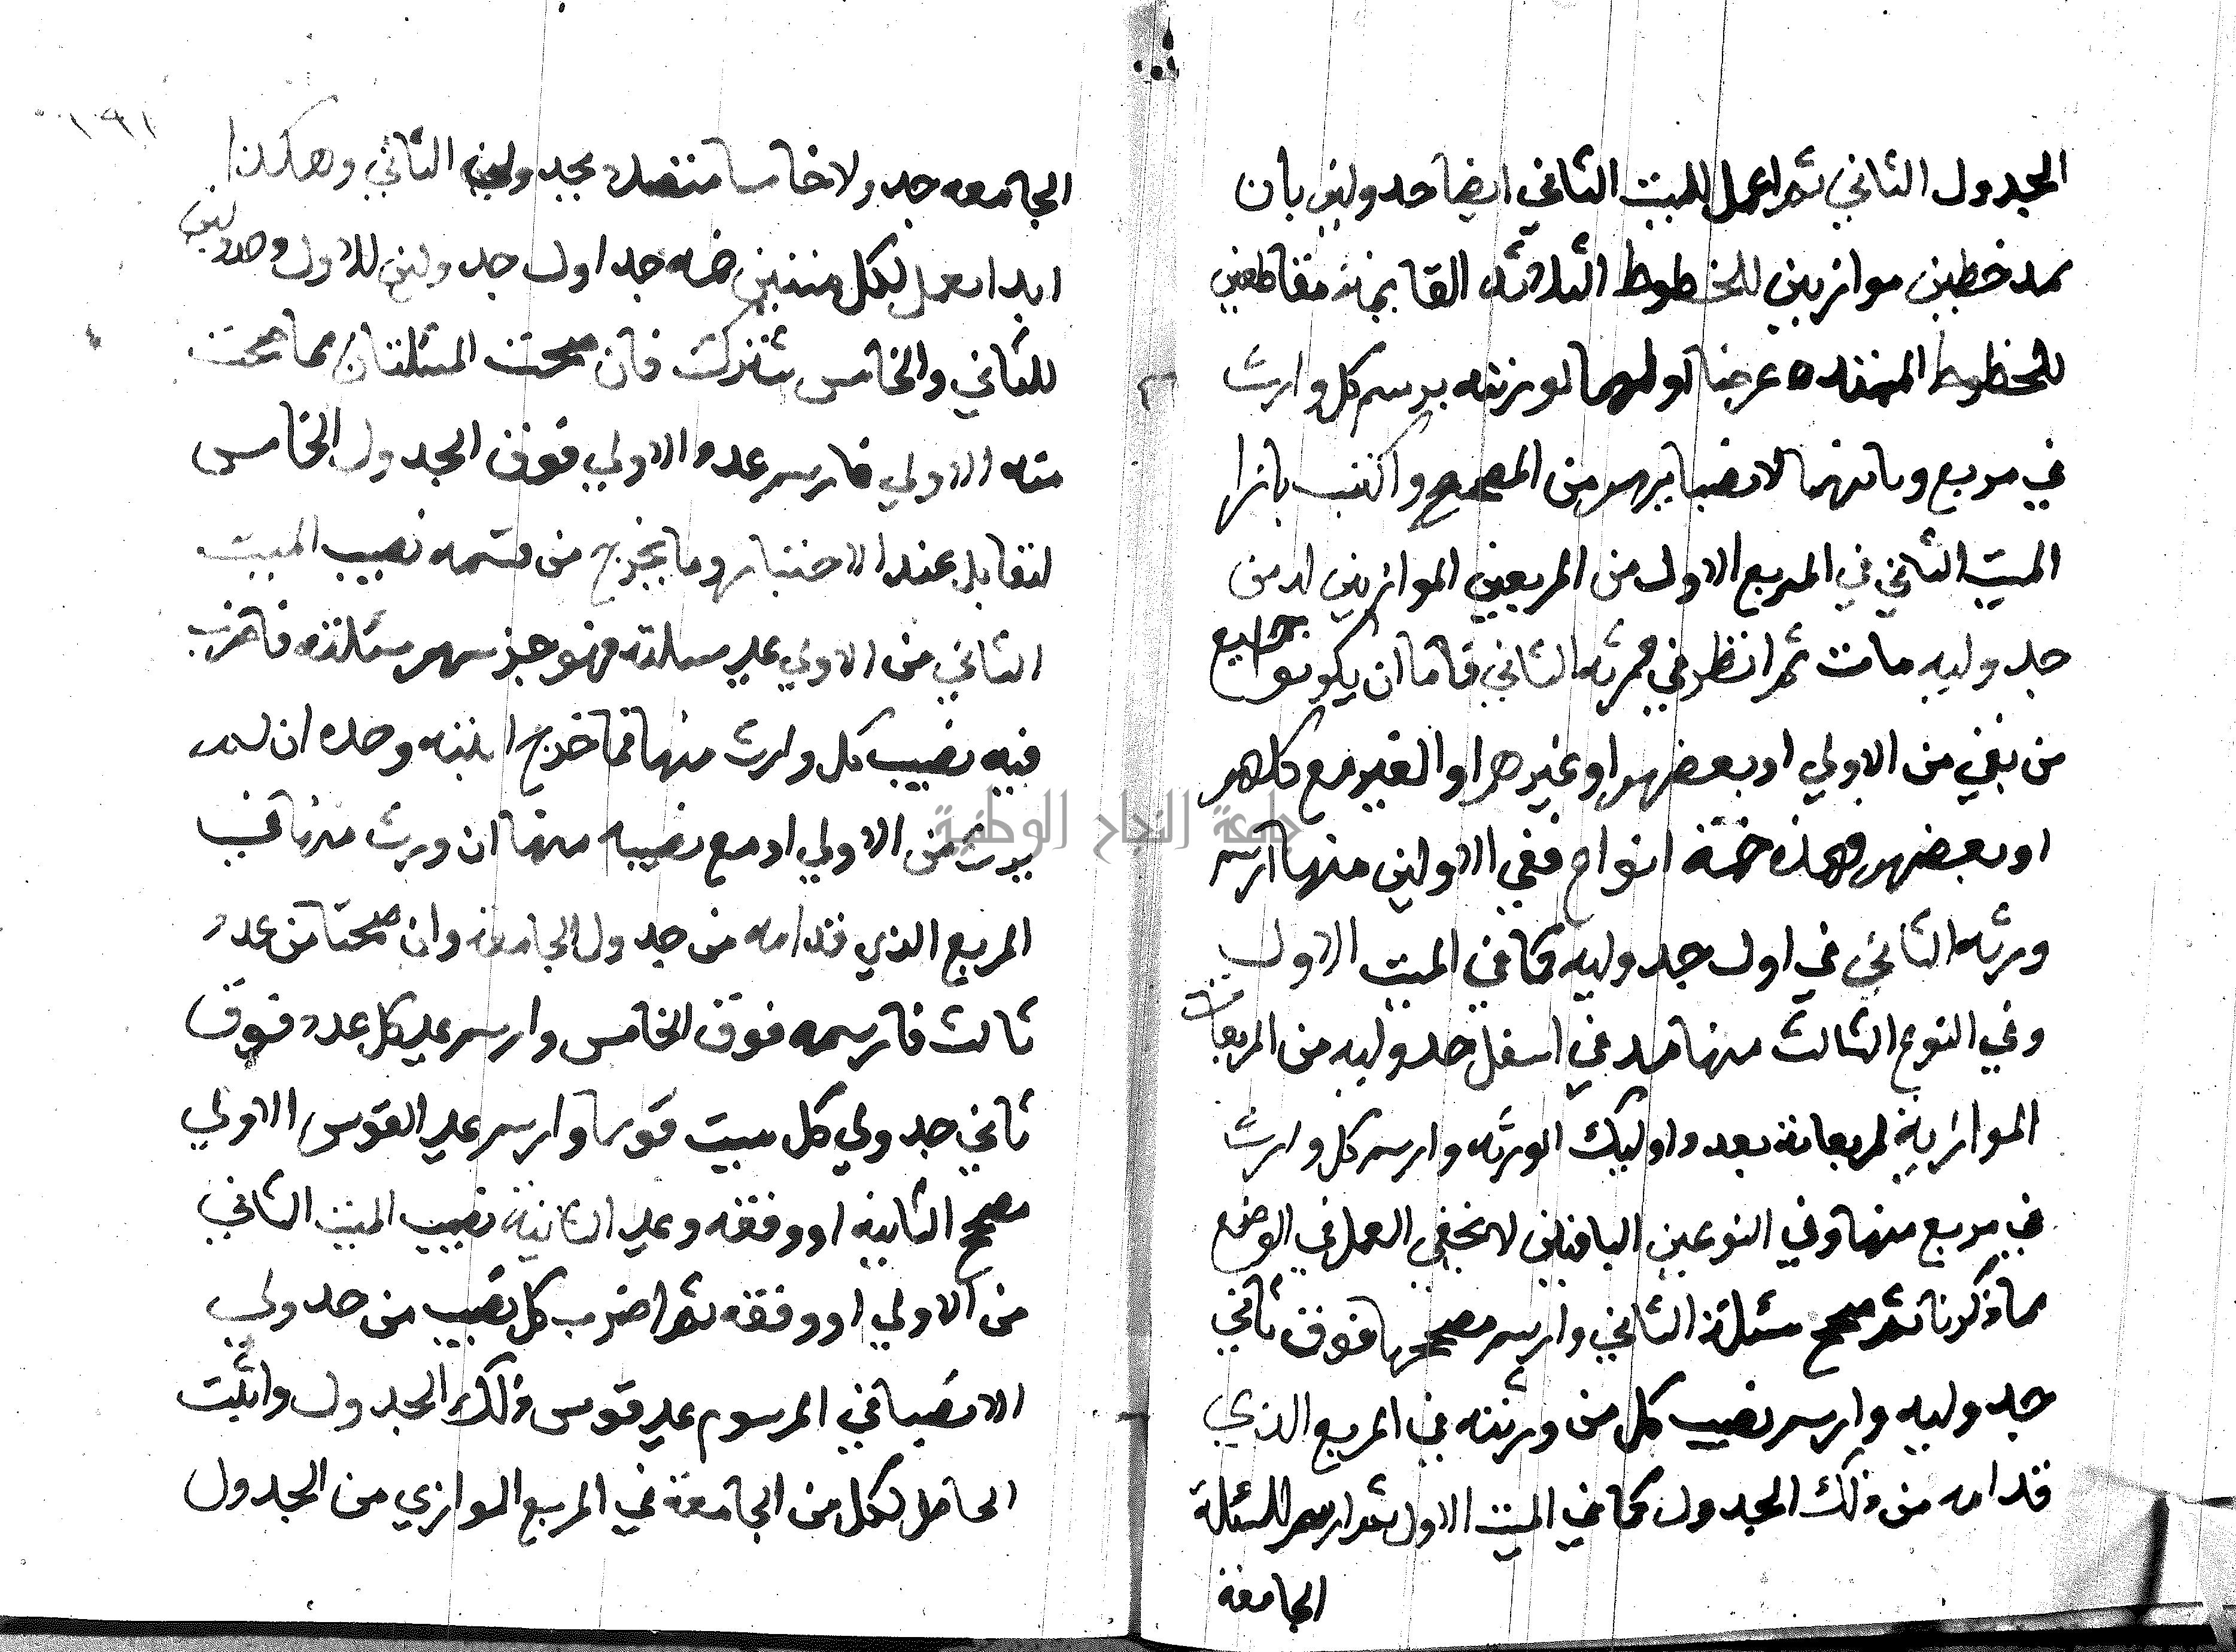 الجدول الثاني ثم اعمل للميت الثاني ايضا جدولين بان
تمد خطين موازيين للخطوط الثلاثة القايمة مقاطعين
للخطوط الممتده عرضا اولهما لورثته برسم كل وارث
في مربع وثانيهما لانصبايهم من المصحح واكتب بازا
الميت الثاني في المربع الاول من المربعين الموازيين له من
جدوليه مات ثم انظر في ورثه الثاني فاما ان يكونوا جميع
من بقي من الاولي او بعضهم او غيرهم او الغير مع كلهم
او بعضهم وهذه خمسة انواع ففي الاولين منها ارسم
ورثه الثاني في اول جدوليه كما في الميت الاول
وفي النوع الثالث منها مد في اسفل جدوليه من المربعات
الموازية لمربعاته بعدد اوليك الورثه وارسم كل وارث
في مربع منها وفي النوعين الباقيين لا يخفي العمل في الوضع
مما ذكرنا ثم صحح مسئلة الثاني وارسم مصححها فوق ثاني
جدوليه وارسم نصيب كل من ورثته في المربع الذي
قدامه من ذلك الجدول كما في الميت الاول ثم ارسم للمسئلة
الجامعة
الجامعه جدولا خامسا متصلا بجدولين الثاني وهكذا
ابدا تعمل لكل ميتين خمسه جداول جدولين للاول وجدولين
للثاني والخامس مشترك فان صحت المسئلتان مما صحت
منه الاولي فارسم عدد الاولي فوق الجدول الخامس
لتقابل عند الاختبار وما يخرج من قسمه نصيب الميت
الثاني من الاولي علي مسئلته فهو جز سهم مسئلته فاضرب
فيه نصيب كل وارث منها فما خرج اثبته وحده ان لم
يرث من الاولي او مع نصيبه منها ان ورث منها في
المربع الذي قدامه من جدول الجامعة وان صحتا من عدد
ثالث فارسمه فوق الخامس وارسم علي كل عدد فوق
ثاني جدولي كل ميت قوسا وارسم علي القوس الاولي
مصحح الثانيه او وفقه وعلي الثانية نصيب الميت الثاني
من الاولي او وفقه ثم اضرب كل نصيب من جدولي
الانصبا في المرسوم علي قوس ذلك الجدول واثبت
الحاصل لكل من الجامعة في المربع الموازي من الجدول
١٩١
جامعة النجاح الوطنية